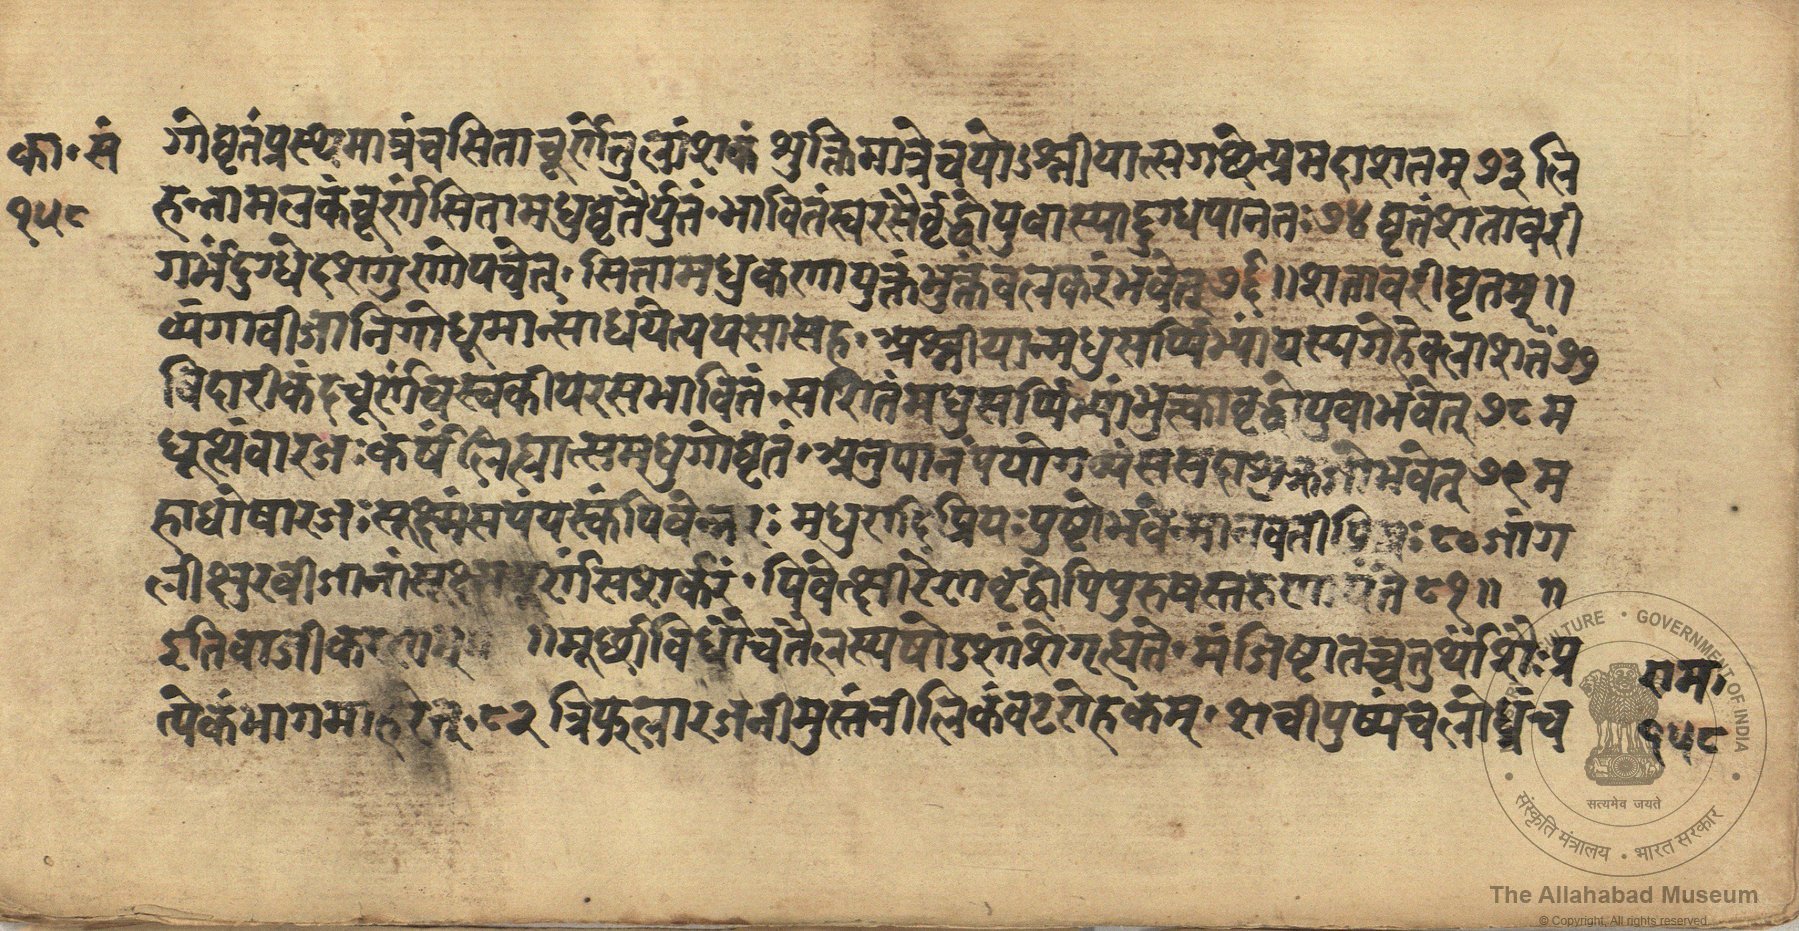 का॰सं
१५८
गोघृतंप्रस्थमात्रंचसिताचूर्णंतुलांशकं शुक्तिमात्रेचयोऽश्नीयात्सगछेत्प्रमदाशतम् ७३ लि
हन्नामलकंचूर्णंसितामधुघृतैर्युतं॰भावितंस्वरसैर्वृद्धोपुवास्याद्दुग्धपानतः ७४ घृतंशतावरी
गर्भंदुग्धेदशगुणेपचेत्॰सितामधुकणायुक्तंभुक्तंबलकरंभवेत् ७६ ॥शतावरीघृतम्॥
व्यंगावीजानिगोधूमान्साधयेत्पयसासह॰अश्नीयान्मधुसर्पिर्भ्यांयस्यगेहेवलाशतं ७७
विदारीकंदचूर्णंचस्वकीयरसभावितं॰सशितंमधुसर्पिर्भ्यांभुत्कावृद्धोपुवाभवेत् ७८ म
धूत्थंवारजःकर्षंलिह्यात्समधुगोघृतं॰अनुपानंपयोगव्यंससदा भवेत् ७९ म
हाधोषारजःसूक्ष्मंसपयस्कंपिवेन्नरः मधुरादिप्रियःपुष्टोभवे ८० शांग
लीक्षुरवीजानां सशर्करं॰पिवेत्क्षीरेणवृद्धोपिपुरुषस्तरुणायते ८१ ॥ ॥
इतिवाजीकरणम् ॥मूर्छाविधौचतैलस्यषोडशांशेगृह्यते॰मंजिष्टातच्चतुर्थांशैःप्र
त्येकंभागमाहरेत्॰८२ त्रिफलारजनीमुस्तंनीलिकंवटरोहकम्॰शचीपुष्पंचलोध्रंच
राम॰
१५८
MINISTRY OF CULTURE • GOVERNMENT OF INDIA
सत्यमेव जयते
संस्कृति मंत्रालय • भारत सरकार
The Allahabad Museum
© Copyright, All rights reserved